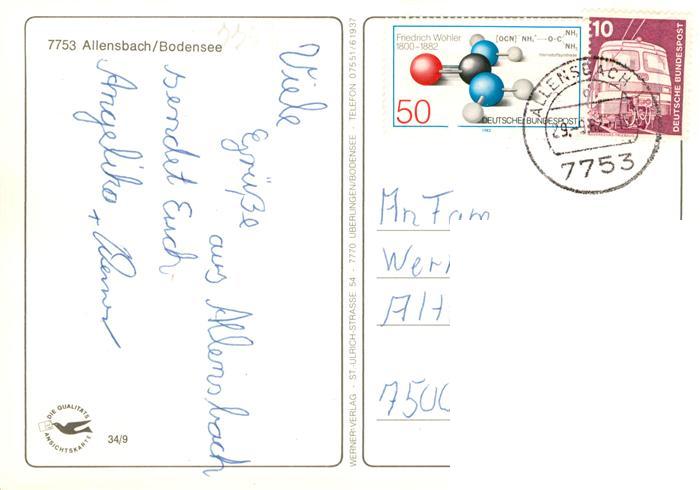 7753 Allensbach/Bodensee
Viele
Grüße
aus Allensbach
sendet Euch
Angelika +
DIE QUALITÄTS
ANSICHTSKARTE
34/9
WERNER-VERLAG - ST.-ULRICH-STRASSE 54 - 7770 ÜBERLINGEN/BODENSEE - TELEFON 07551/61937
Friedrich Wöhler
1800-1882
[OCN]⁻ NH₄⁺ → O=C
NH₂
NH₂
Harnstoffsynthese
50
DEUTSCHE BUNDESPOST
1982
10
DEUTSCHE BUNDESPOST
ALLENSBACH
7753
An Fam
Wer
Alt
7500